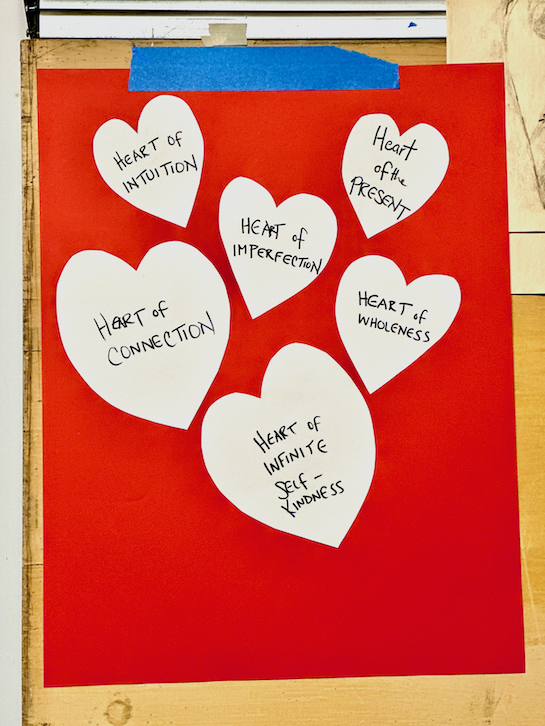 HEART OF
INTUITION
Heart
of the
PRESENT
HEART of
IMPERFECTION
HEART OF
CONNECTION
HEART of
WHOLENESS
HEART OF
INFINITE
SELF-
KINDNESS